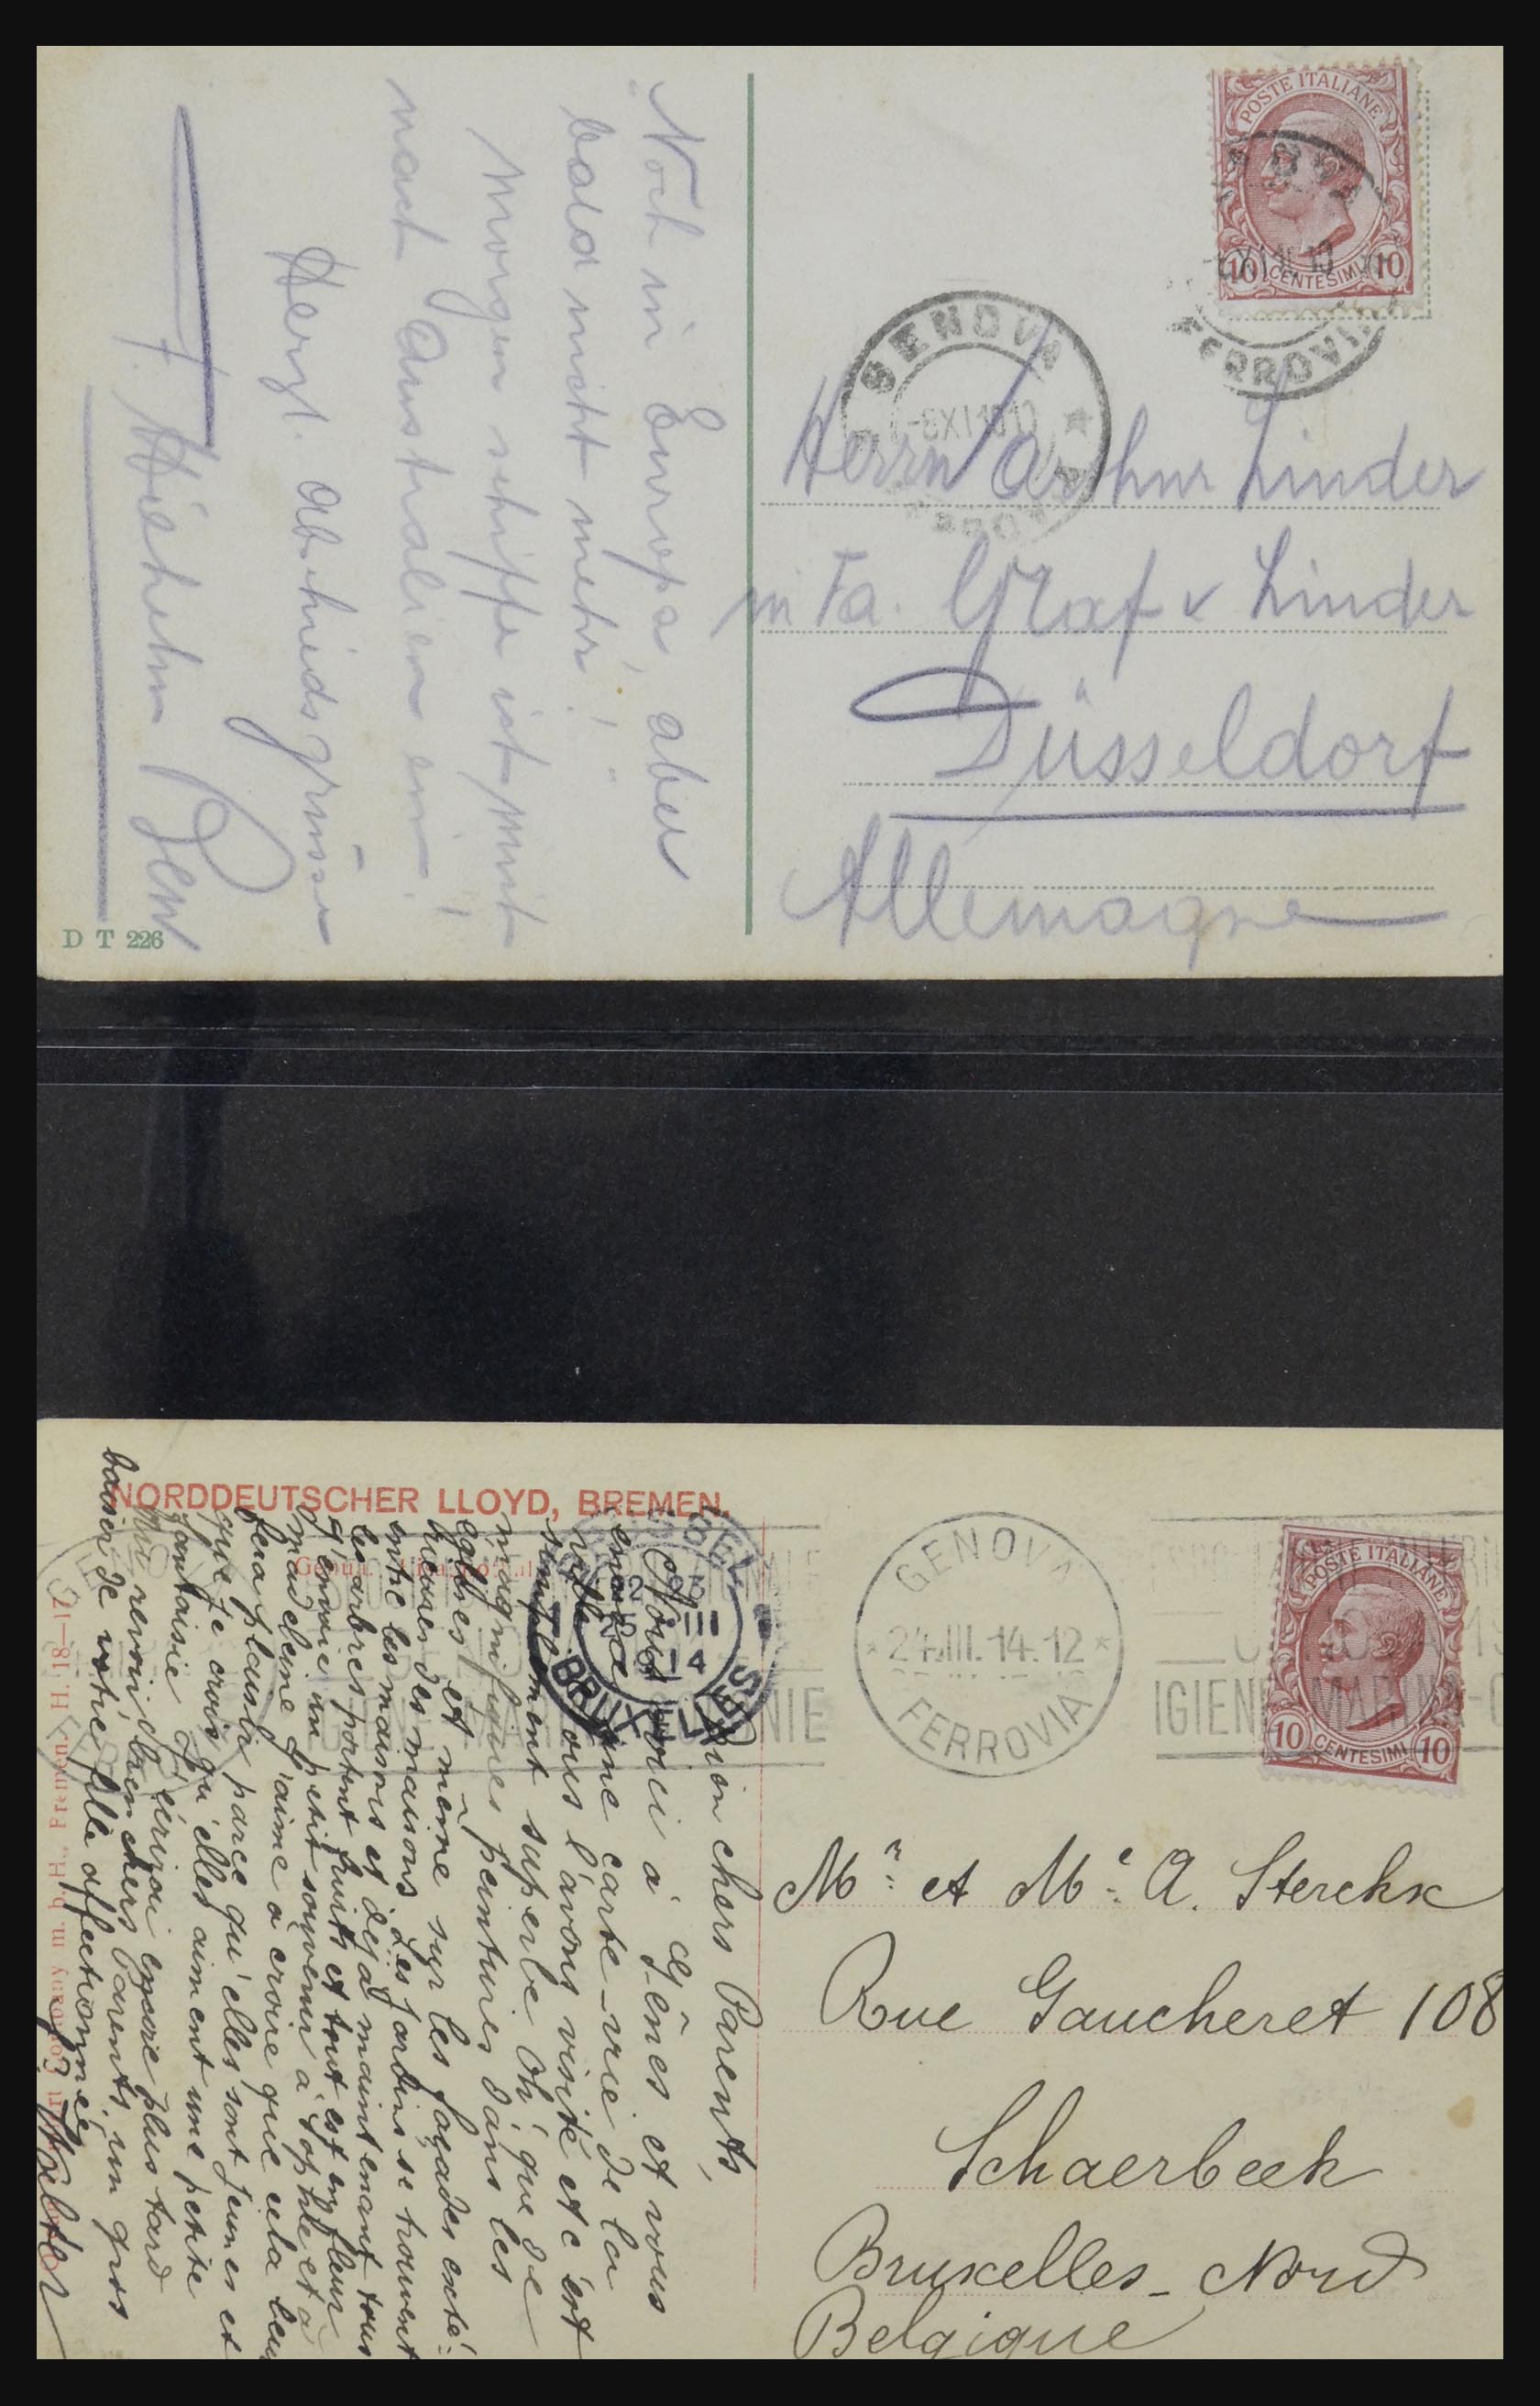 POSTE ITALIANE
10 CENTESIMI 10
GENOVA
FERROVIA
Herrn Arthur Linder
in Fa. Graf & Linder
Düsseldorf
Allemagne
"Noch in Europa, aber
bald nicht mehr!"
Morgen schiffe ich mich
nach Australien ein!
Herzl. Abschiedsgrüsse
D T 226
NORDDEUTSCHER LLOYD, BREMEN.
POSTE ITALIANE
10 CENTESIMI 10
GENOVA
24.III.14.12
FERROVIA
BRUXELLES
III
14
Mr. et Me. A. Sterckx
Rue Gaucheret 108
Schaerbeek
Bruxelles - Nord
Belgique
Mon chers Parents,
Nous voici à Gênes et vous
envoie une carte-vue de la
ville. Nous l'avons visité et c'est
simplement superbe. Oh! que de
magnifiques peintures dans les
églises et même sur les façades exté-
rieures des maisons. Les jardins se trouvent
entre les maisons et déjà maintenant tous
les arbres portent fruits et tout est en fleur
J'envoie un petit souvenir à Sophie et à
Madeleine j'aime à croire que cela leur
fera plaisir parce qu'elles sont jeunes et
que je crois qu'elles aiment une petite
fantaisie. J'écrirai encore plus tard
Au revoir bien chers Parents, un gros
baiser de votre fille affectionnée.
H. 18—17